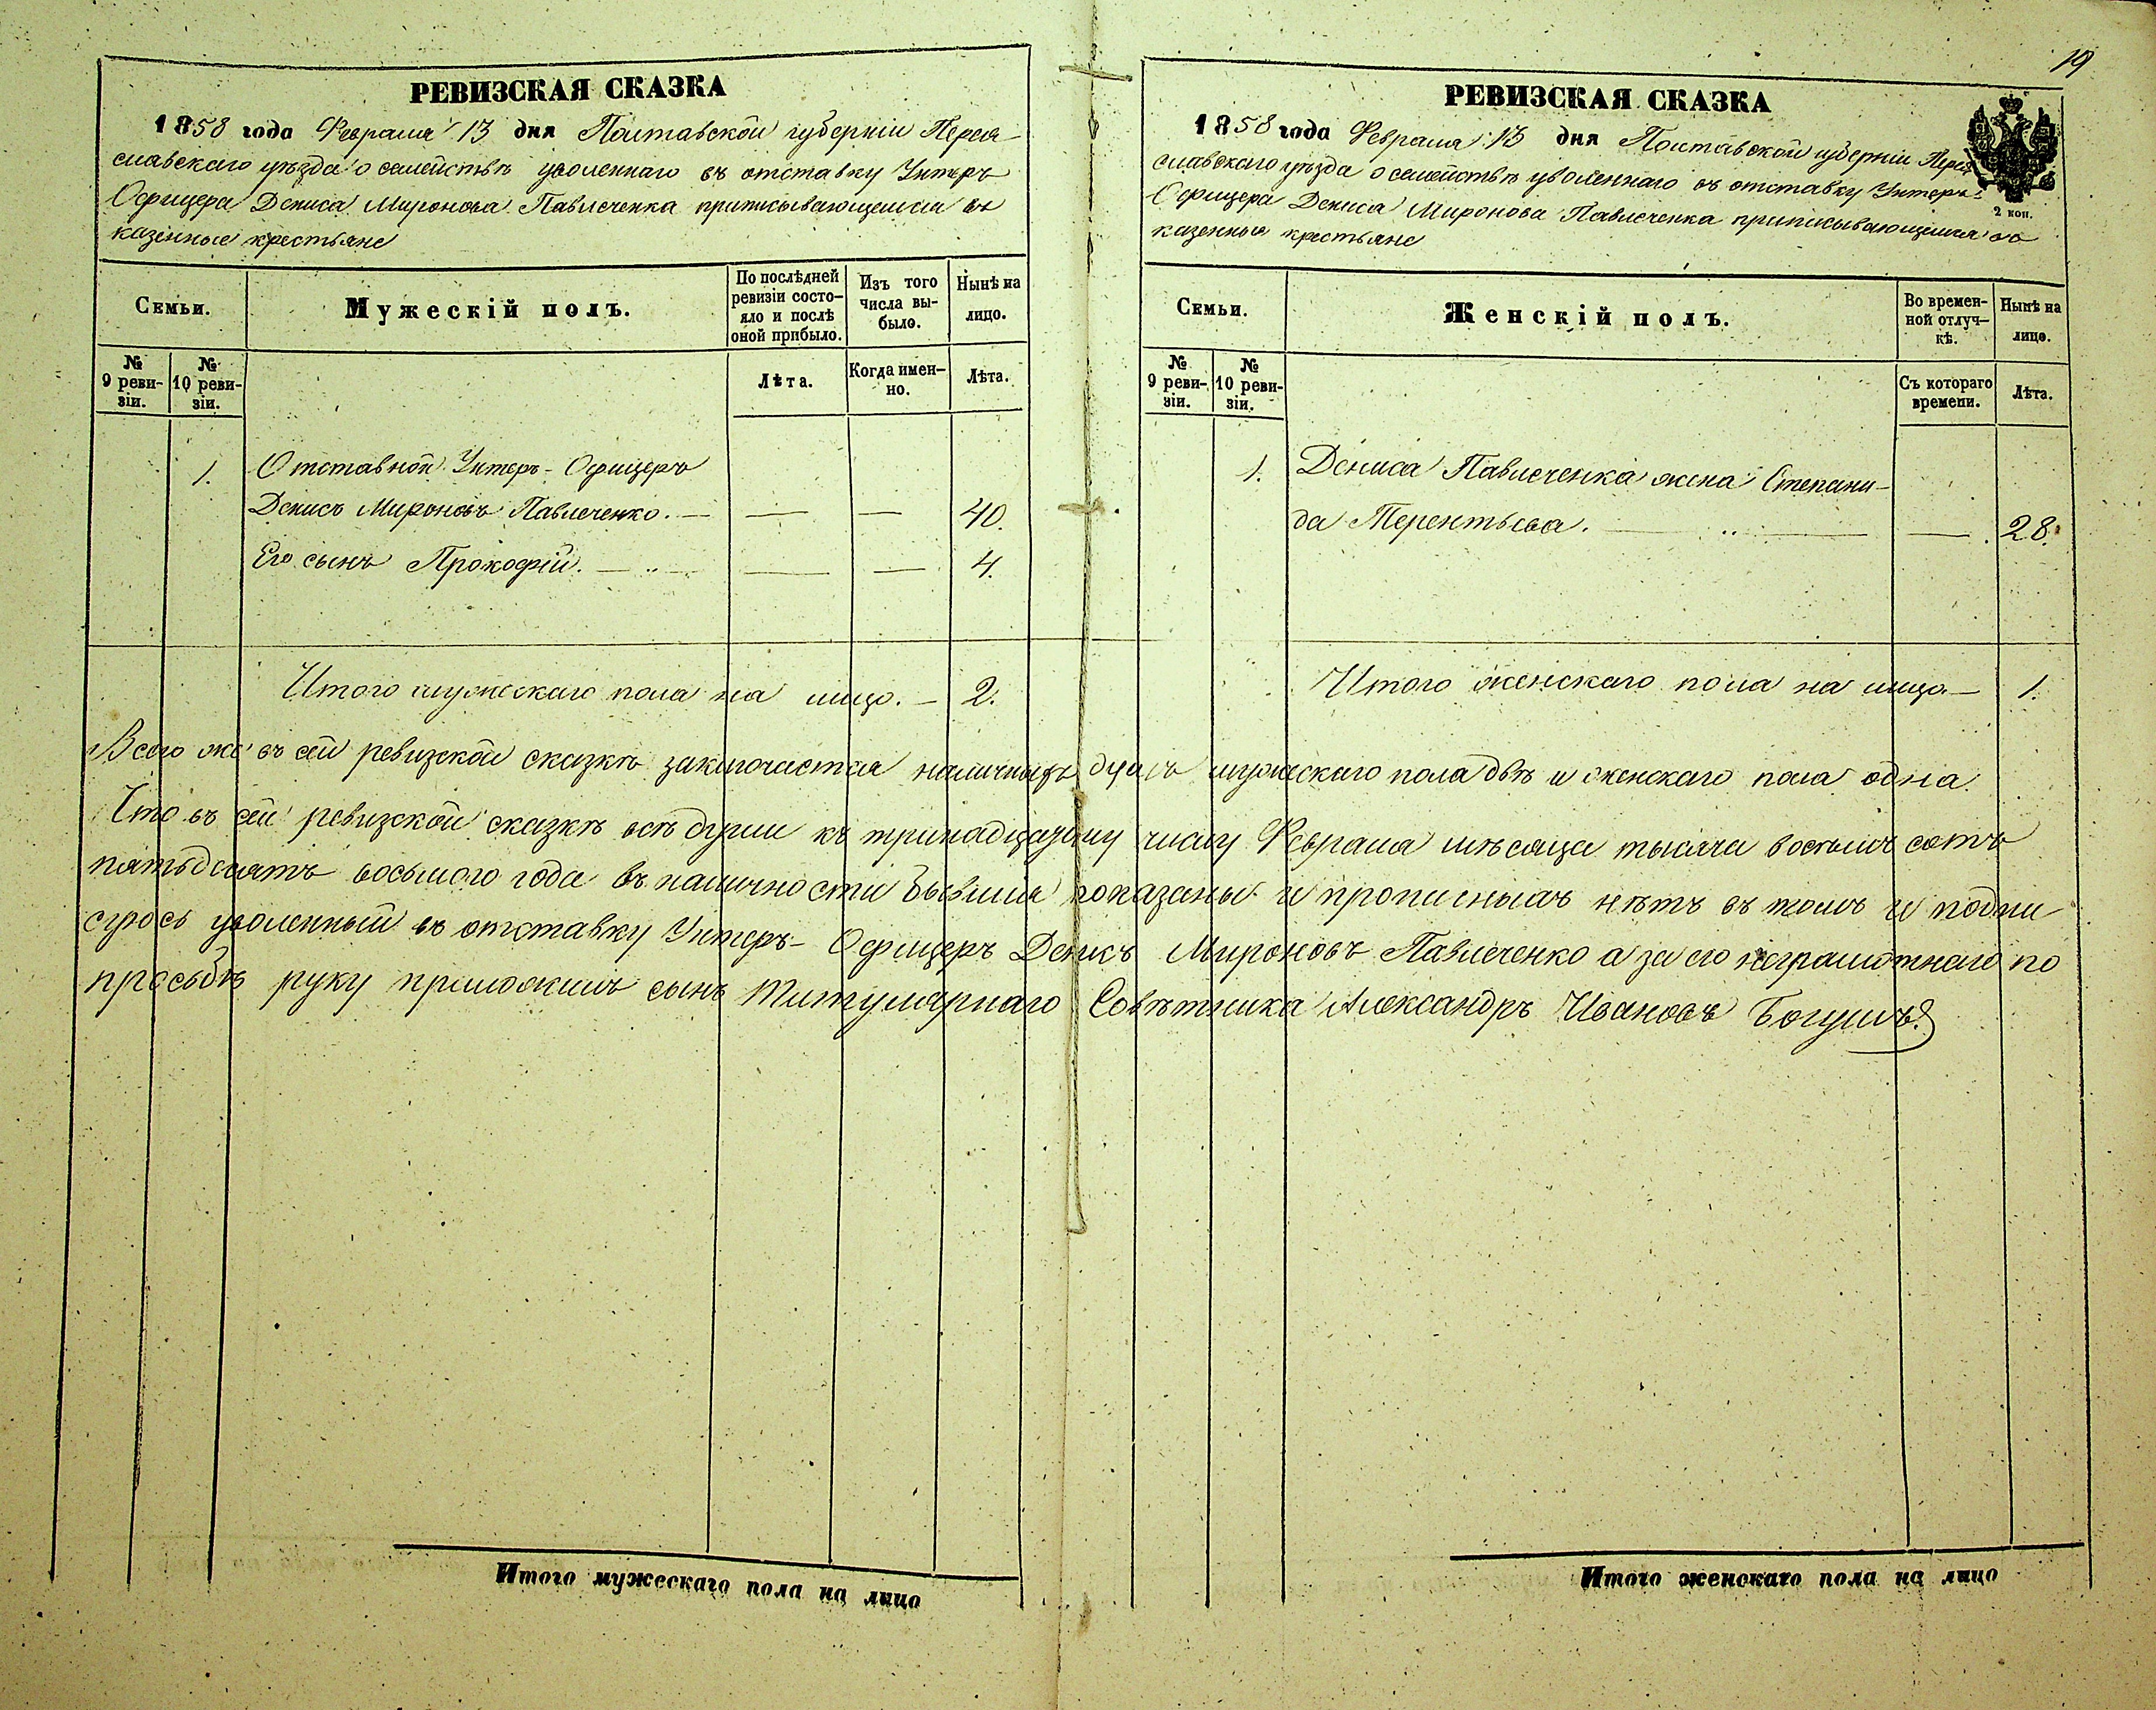 РЕВИЗСКАЯ СКАЗКА
1858 года Февраля 13 дня Полтавской губерніи Перея-
славскаго уѣзда о семействѣ уволеннаго въ отставку Унтеръ
Офицера Дениса Миронова Павлеченка приписывающемся въ
казенные крестьяне
Семьи.
Мужескій полъ.
По послѣдней
ревизіи состо-
яло и послѣ
оной прибыло.
Изъ того
числа вы-
было.
Нынѣ на
лицо.
№
9 реви-
зіи.
№
10 реви-
зіи.
Лѣта.
Когда имен-
но.
Лѣта.
1. Отставной Унтеръ-Офицеръ
Денисъ Мироновъ Павлеченко. — — — 40.
Его сынъ Прокофій. — — — 4.
Итого мужескаго пола на лицо. — 2.
19
РЕВИЗСКАЯ СКАЗКА
1858 года Февраля 13 дня Полтавской губерніи Перея
славскаго уѣзда о семействѣ уволеннаго въ отставку Унтеръ-
Офицера Дениса Миронова Павлеченка приписывающемся въ
казенныя крестьяне
2 коп.
Семьи.
Женскій полъ.
Во времен-
ной отлуч-
кѣ.
Нынѣ на
лицо.
№
9 реви-
зіи.
№
10 реви-
зіи.
Съ котораго
времени.
Лѣта.
1. Дениса Павлеченка жена Степани-
да Терентьева. — — — 28.
Итого женскаго пола на лицо. — 1.
Всего же въ сей ревизской сказкѣ заключается наличныхъ душъ мужескаго пола двѣ и женскаго пола одна.
Что въ сей ревизской сказкѣ всѣ души къ тринадцатому числу Февраля мѣсяца тысяча восемь сотъ
пятьдесятъ восьмого года въ наличности бывшія показаны и прописныхъ нѣтъ въ томъ и подпи-
суюсь уволенный въ отставку Унтеръ-Офицеръ Денисъ Мироновъ Павлеченко а за его неграмотнаго по
просьбѣ руку приложилъ сынъ Титулярнаго Совѣтника Александръ Ивановъ Богушъ.
Итого мужескаго пола на лицо
Итого женскаго пола на лицо